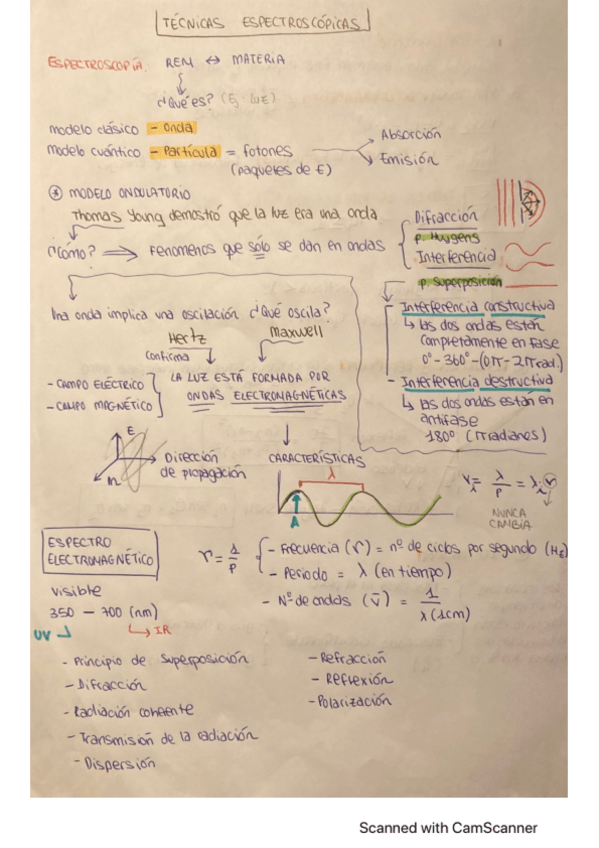 TÉCNICAS ESPECTROSCÓPICAS
ESPECTROSCOPÍA: REM ↔ MATERIA
¿Qué es? (Ej: luz)
modelo clásico - onda
modelo cuántico - Partícula = fotones
(paquetes de E)
Absorción
Emisión
MODELO ONDULATORIO
Thomas Young demostró que la luz era una onda
¿Cómo? ⇒ Fenómenos que sólo se dan en ondas
Difracción
P. Huygens
Interferencia
P. Superposición
Interferencia constructiva
↳ las dos ondas están
completamente en fase
0º - 360º - (0π - 2π rad.)
- Interferencia destructiva
↳ las dos ondas están en
antifase
180º (π radianes)
Una onda implica una oscilación ¿Qué oscila?
Hertz
confirma
Maxwell
- CAMPO ELÉCTRICO
- CAMPO MAGNÉTICO
LA LUZ ESTÁ FORMADA POR
ONDAS ELECTROMAGNÉTICAS
E
M
Dirección
de propagación
CARACTERÍSTICAS
λ
A
V = λ/P = λ · ν
NUNCA
CAMBIA
ESPECTRO
ELECTROMAGNÉTICO
ν = 1/P
- Frecuencia (ν) = nº de ciclos por segundo (Hz)
- Periodo = λ (en tiempo)
- Nº de ondas (ν̄) = 1/λ (1cm)
Visible
350 - 700 (nm)
UV
↳ IR
- Principio de superposición
- Difracción
- Radiación coherente
- Transmisión de la radiación
- Dispersión
- Refracción
- Reflexión
- Polarización
Scanned with CamScanner